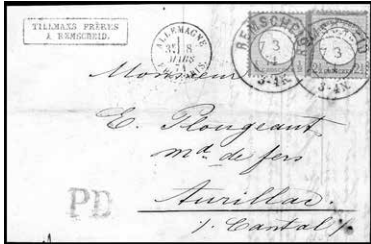 TILLMANS FRÈRES
À REMSCHEID.
ALLEMAGNE
8
MARS
74
REMSCHEID
7 3
3-4N.
REMSCHEID
7 3
3-4N.
Monsieur
E. Plougeant,
md. de fers
Aurillac.
PD
/. Cantal /.